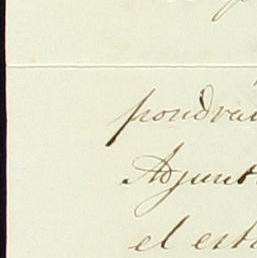 pondrá
Adjunt
el est